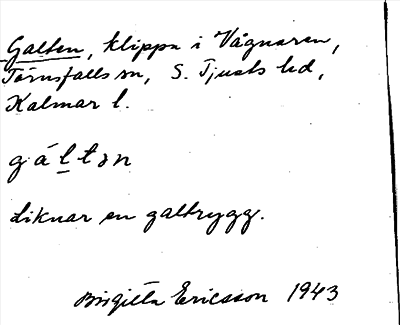 Galten, klippa i Vågnaren,
Törnsfalls sn, S. Tjusts hd,
Kalmar l.
gáltən
Liknar en galtrygg.
Birgitta Ericsson 1943